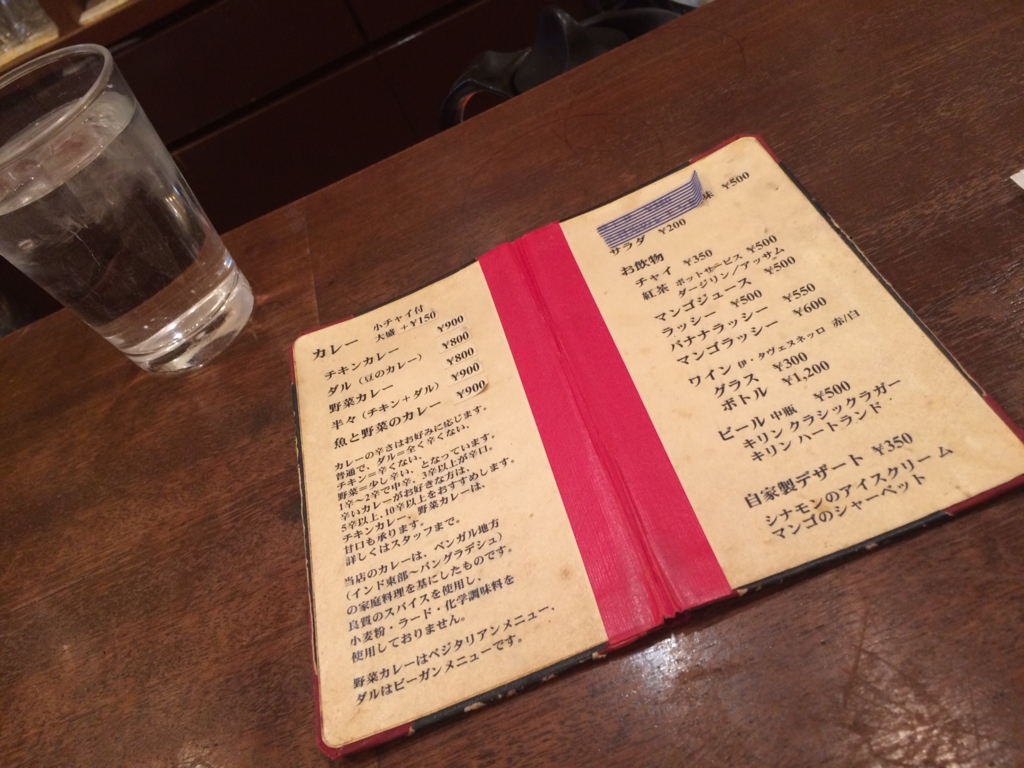 カレー 小チャイ付
大盛 +¥150
チキンカレー ¥900
ダル (豆のカレー) ¥800
野菜カレー ¥800
半々 (チキン+ダル) ¥900
魚と野菜のカレー ¥900
カレーの辛さはお好みに応じます。
普通で、ダル=全く辛くない、
チキン=辛くない、
野菜=少し辛い、となっています。
1辛~2辛で中辛、3辛以上が辛口。
辛いカレーがお好きな方は、
5辛以上、10辛以上をおすすめします。
チキンカレー、野菜カレーは、
甘口も承ります。
詳しくはスタッフまで。
当店のカレーは、ベンガル地方
(インド東部~バングラデシュ)
の家庭料理を基にしたものです。
良質のスパイスを使用し、
小麦粉・ラード・化学調味料を
使用しておりません。
野菜カレーはベジタリアンメニュー、
ダルはビーガンメニューです。
味 ¥500
サラダ ¥200
お飲物
チャイ ¥350
紅茶 ポットサービス ¥500
ダージリン/アッサム
マンゴジュース ¥500
ラッシー ¥500
バナナラッシー ¥550
マンゴラッシー ¥600
ワイン 伊・タヴェスネッロ 赤/白
グラス ¥300
ボトル ¥1,200
ビール 中瓶 ¥500
キリン クラシックラガー
キリン ハートランド
自家製デザート ¥350
シナモンのアイスクリーム
マンゴのシャーベット